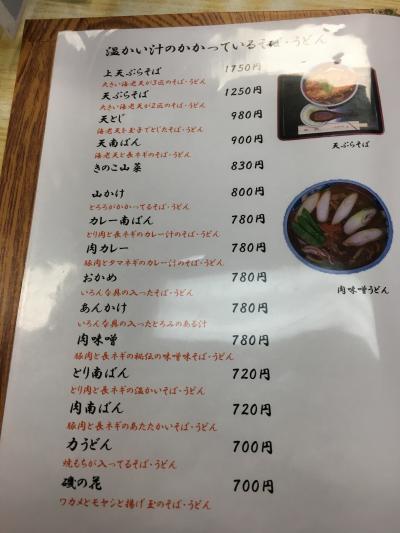 温かい汁のかかっているそば・うどん
上天ぷらそば 1750円
大きい海老天が3匹のそば・うどん
天ぷらそば 1250円
大きい海老天が2匹のそば・うどん
天とじ 980円
海老天を玉子でとじたそば・うどん
天南ばん 900円
海老天と長ネギのそば・うどん
きのこ山菜 830円
山かけ 800円
とろろがかかってるそば・うどん
カレー南ばん 780円
とり肉と長ネギのカレー汁のそば・うどん
肉カレー 780円
豚肉とタマネギのカレー汁のそば・うどん
おかめ 780円
いろんな具の入ったそば・うどん
あんかけ 780円
いろんな具の入ったとろみのある汁
肉味噌 780円
豚肉と長ネギの秘伝の味噌味そば・うどん
とり南ばん 720円
とり肉と長ネギの温かいそば・うどん
肉南ばん 720円
豚肉と長ネギのあたたかいそば・うどん
力うどん 700円
焼もちが入ってるそば・うどん
磯の花 700円
ワカメとモヤシと揚げ玉のそば・うどん
天ぷらそば
肉味噌うどん